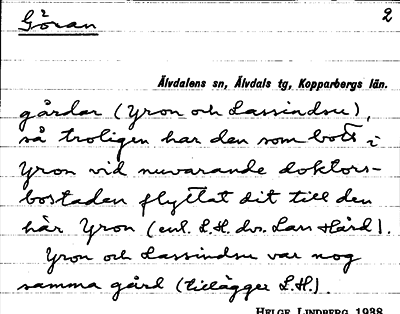 Göran 2
Älvdalens sn, Älvdals tg, Kopparbergs län.
gårdar (Yron och Lassindsu),
så troligen har den som bott i
Yron vid nuvarande doktors-
bostaden flyttat dit till den
här Yron (enl. L.H. dvs. Lars Hård).
Yron och Lassindsu var nog
samma gård (tillägger L.H.).
HELGE LINDBERG 1938